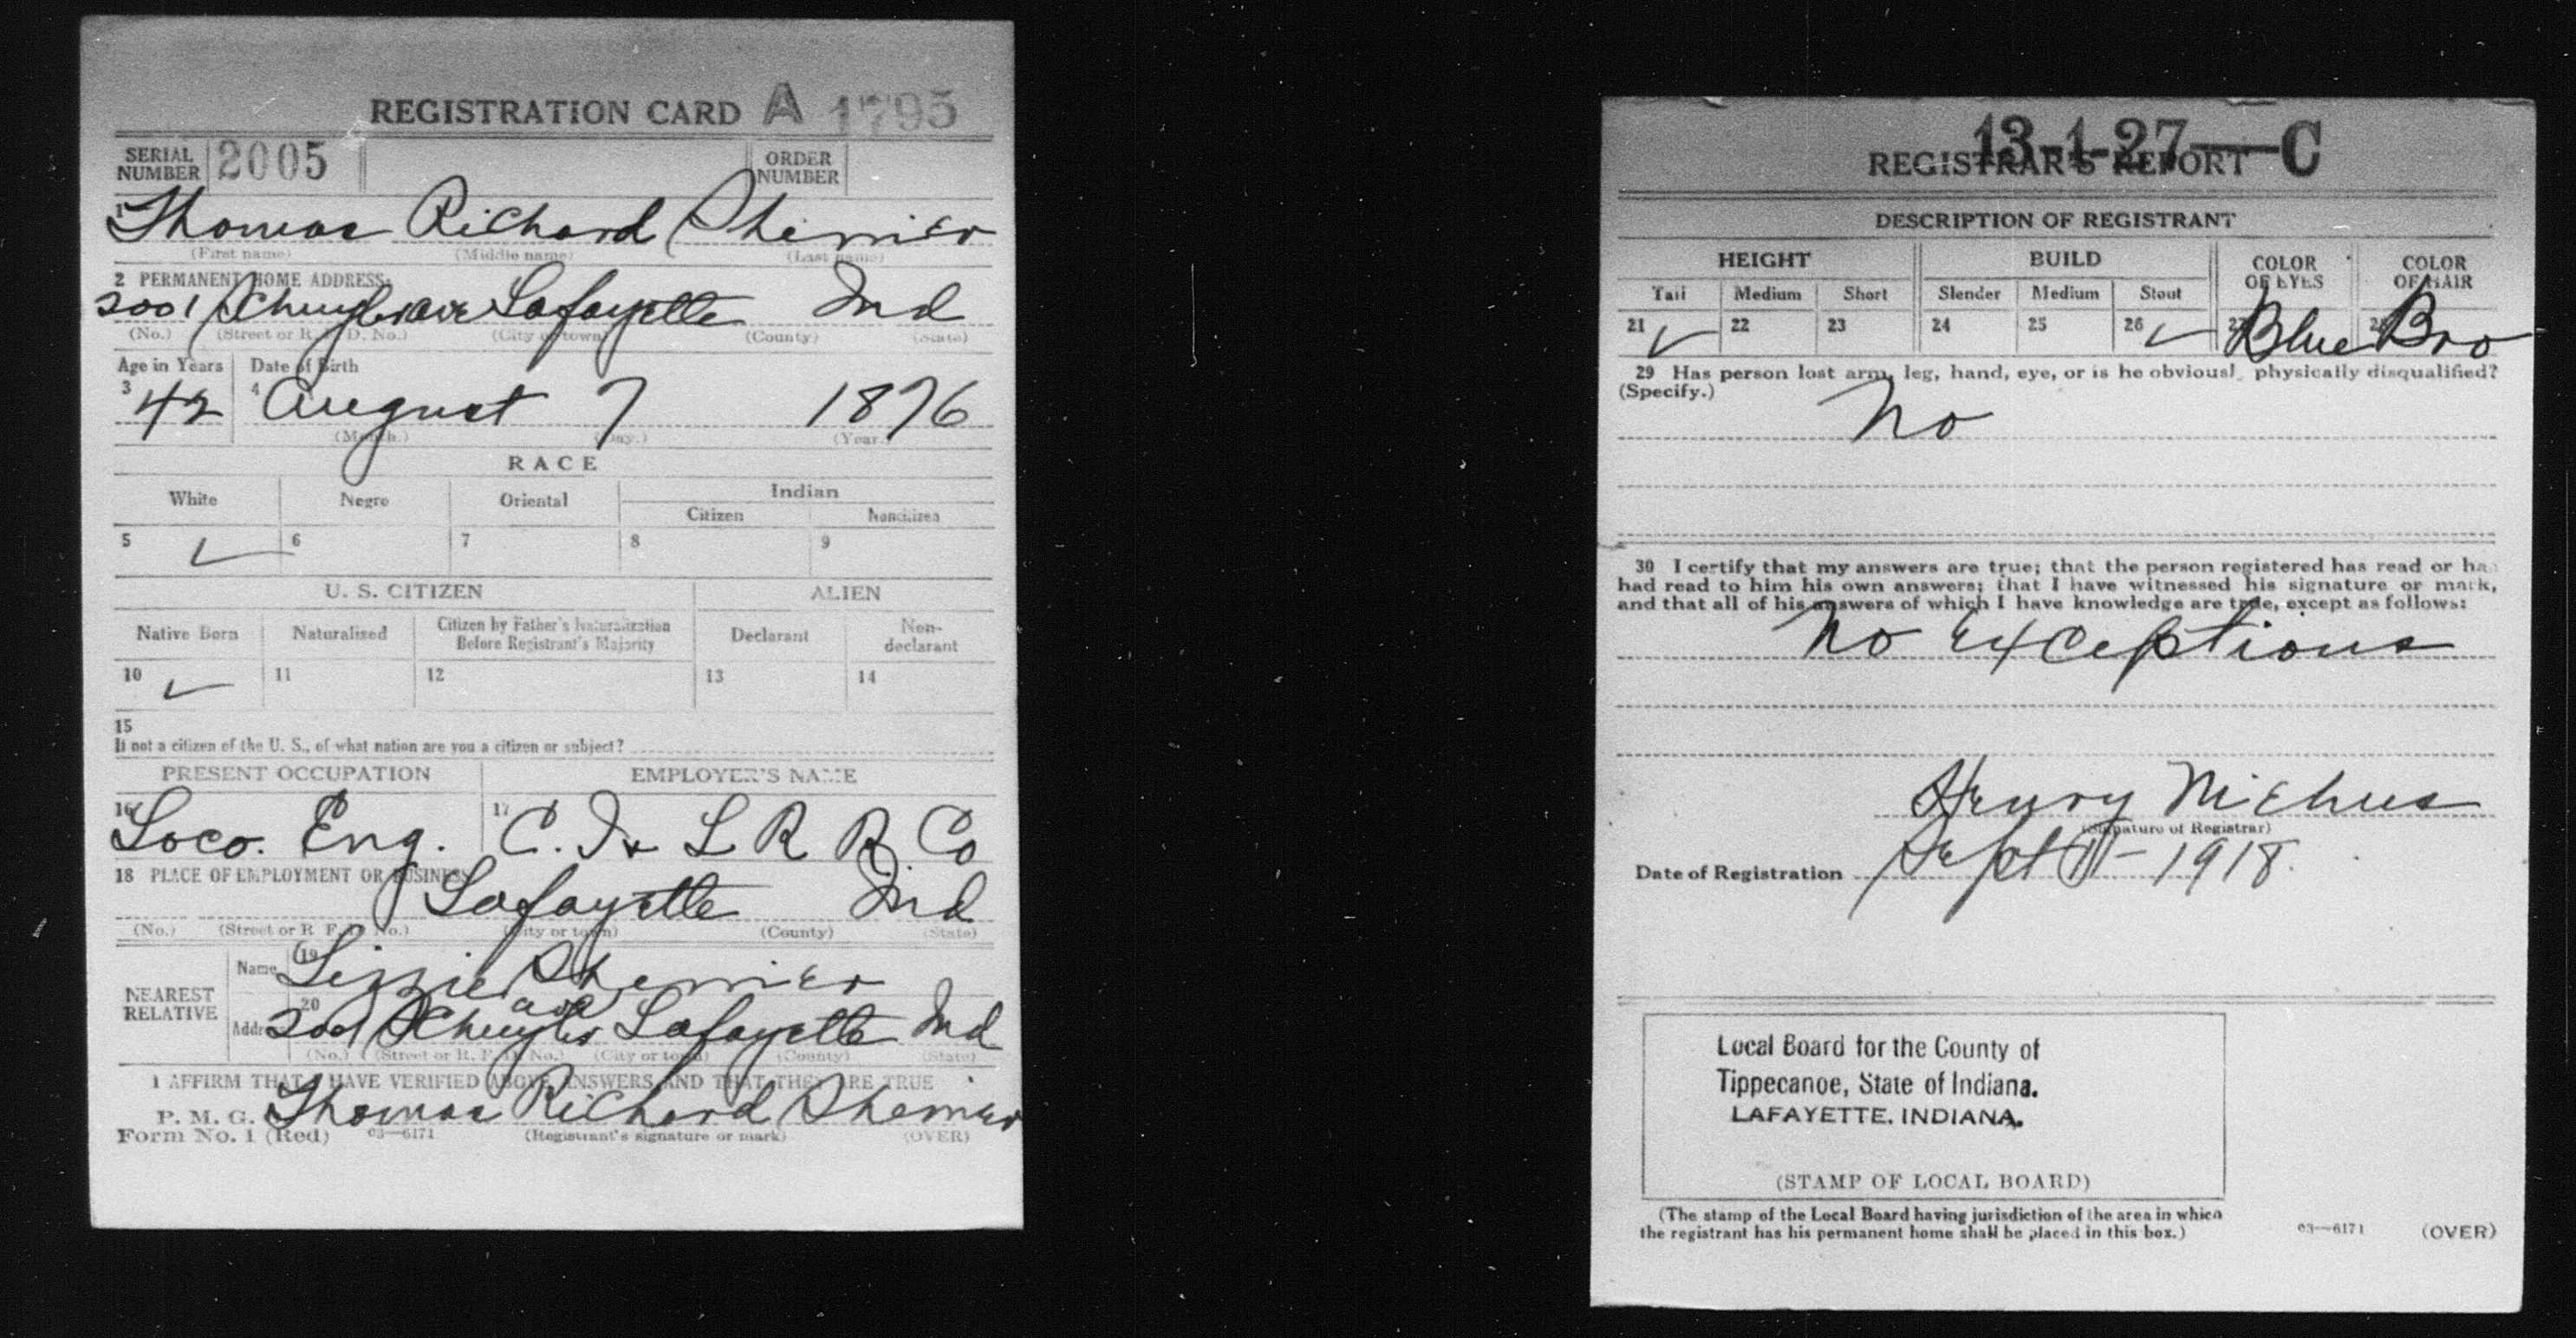 REGISTRATION CARD A 1795
SERIAL NUMBER 2005 ORDER NUMBER
1 Thomas Richard Shemier
(First name) (Middle name) (Last name)
2 PERMANENT HOME ADDRESS:
2001 Schuyler ave Lafayette Ind
(No.) (Street or R. F. D. No.) (City or town) (County) (State)
Age in Years Date of Birth
3 42 4 August 7 1876
(Month.) (Day.) (Year.)
RACE
White Negro Oriental Indian
Citizen Noncitizen
5 ✓ 6 7 8 9
U. S. CITIZEN ALIEN
Native Born Naturalized Citizen by Father's Naturalization Before Registrant's Majority Declarant Non-declarant
10 ✓ 11 12 13 14
15
If not a citizen of the U. S., of what nation are you a citizen or subject?
PRESENT OCCUPATION EMPLOYER'S NAME
16 Loco. Eng. 17 C. I & L R R Co
18 PLACE OF EMPLOYMENT OR BUSINESS
Lafayette Ind
(No.) (Street or R. F. D. No.) (City or town) (County) (State)
NEAREST RELATIVE
Name 19 Lizzie Shemier
Address 20 2001 Schuyler ave Lafayette Ind
(No.) (Street or R. F. D. No.) (City or town) (County) (State)
I AFFIRM THAT I HAVE VERIFIED ABOVE ANSWERS AND THAT THEY ARE TRUE
P. M. G. O. Thomas Richard Shemier
Form No. 1 (Red) 03—6171 (Registrant's signature or mark) (OVER)
13-1-27—C
REGISTRAR'S REPORT
DESCRIPTION OF REGISTRANT
HEIGHT BUILD COLOR OF EYES COLOR OF HAIR
Tall Medium Short Slender Medium Stout
21 ✓ 22 23 24 25 26 ✓ 27 Blue 28 Bro
29 Has person lost arm, leg, hand, eye, or is he obviously physically disqualified?
(Specify.)
No
30 I certify that my answers are true; that the person registered has read or has
had read to him his own answers; that I have witnessed his signature or mark,
and that all of his answers of which I have knowledge are true, except as follows:
No Exceptions
Henry Niehus
(Signature of Registrar)
Date of Registration Sept 11 - 1918.
Local Board for the County of
Tippecanoe, State of Indiana.
LAFAYETTE, INDIANA.
(STAMP OF LOCAL BOARD)
(The stamp of the Local Board having jurisdiction of the area in which
the registrant has his permanent home shall be placed in this box.)
03—6171 (OVER)